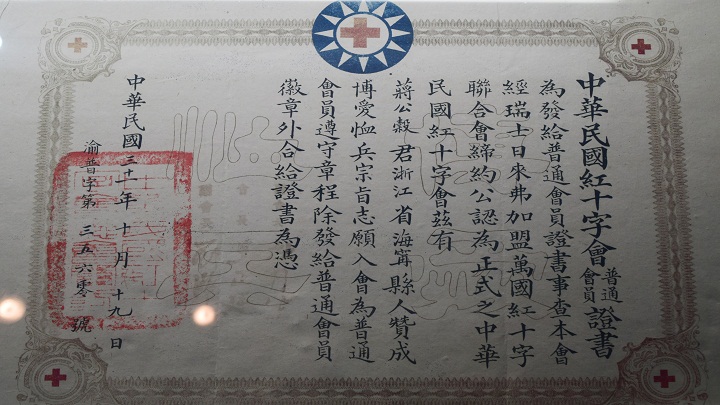 中華民國紅十字會普通會員證書
為發給普通會員證書事查本會
經瑞士日來弗加盟萬國紅十字
聯合會締約公認為正式之中華
民國紅十字會茲有
蔣公穀君浙江省海寧縣人贊成
博愛恤兵宗旨志願入會為普通
會員遵守章程除發給普通會員
徽章外合給證書為憑
中華民國三十一年十月十九日
渝普字第三五六零號